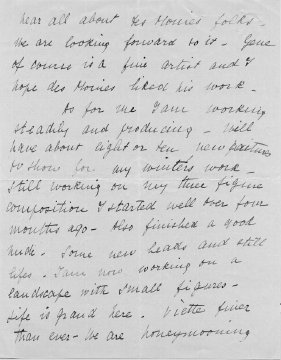 hear all about Des Moines folks -
We are looking forward to it - Gene
of course is a fine artist and I
hope Des Moines liked his work -
As for me I am working
steadily and producing - Will
have about eight or ten new pictures
to show for my winters work -
Still working on my three figure
composition I started well over four
months ago - Also finished a good
nude - Some new heads and still
lifes - I am now working on a
landscape with small figures -
Life is grand here - finer
than ever - We are honeymooning